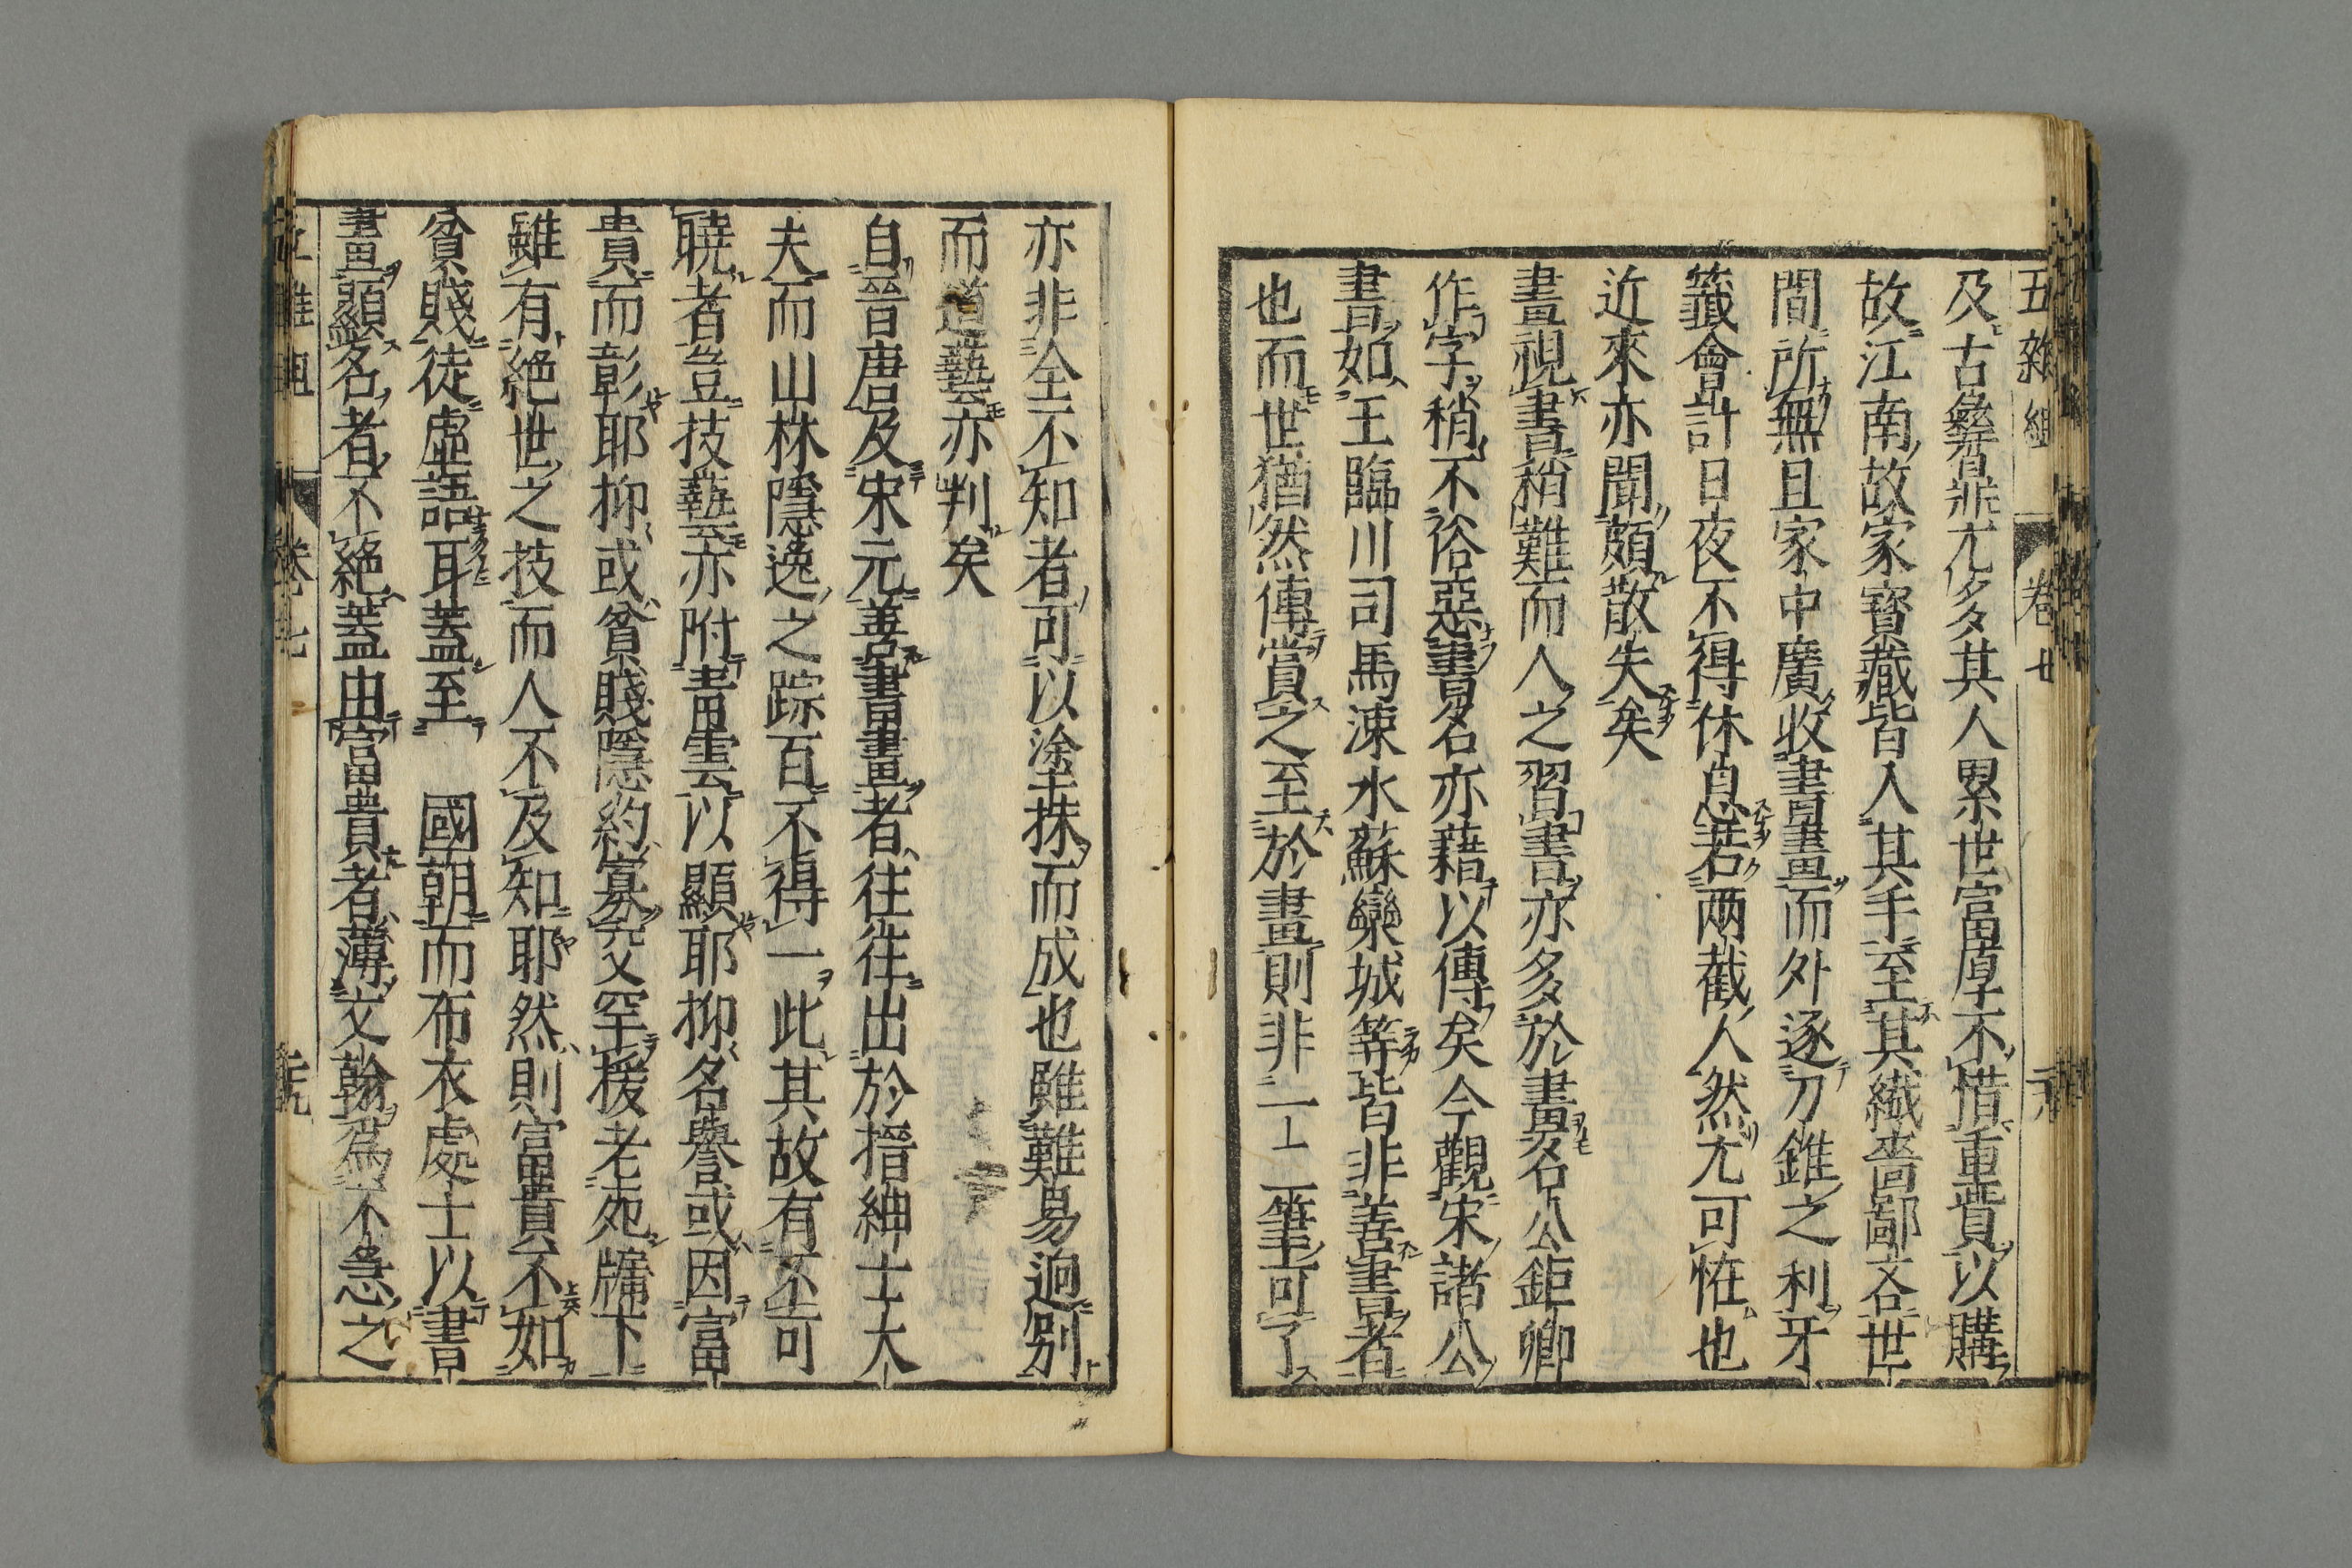 五雜組 卷七
及古彝器尤多其人累世富厚不惜重貲以購
故江南故家寳藏皆入其手至其纎嗇鄙吝世
間所無且家中廣收書畫而外逐刀錐之利牙
籤會計日夜不得休息若两截人然尤可恠也
近來亦聞頗散失矣
畫視書稍難而人之習書亦多於畫名公鉅卿
作字稍不俗惡書名亦藉以傳矣今觀宋諸公
書如王臨川司馬涑水蘇欒城等皆非善書者
也而世猶然傳賞之至於畫則非一二筆可了
亦非全不知者可以塗抹而成也雖難易逈別
而道藝亦判矣
自晉唐及宋元善書畫者往往出於搢紳士大
夫而山林隱逸之踪百不得一此其故有不可
曉者豈技藝亦附青雲以顯耶抑名譽或因富
貴而彰耶抑或貧賤隱約寡交罕援老死牖下
雖有絶世之技而人不及知耶然則富貴不如
貧賤徒虛語耳蓋至 國朝而布衣處士以書
畫顯名者不絶蓋由富貴者薄文翰爲不急之
卷七